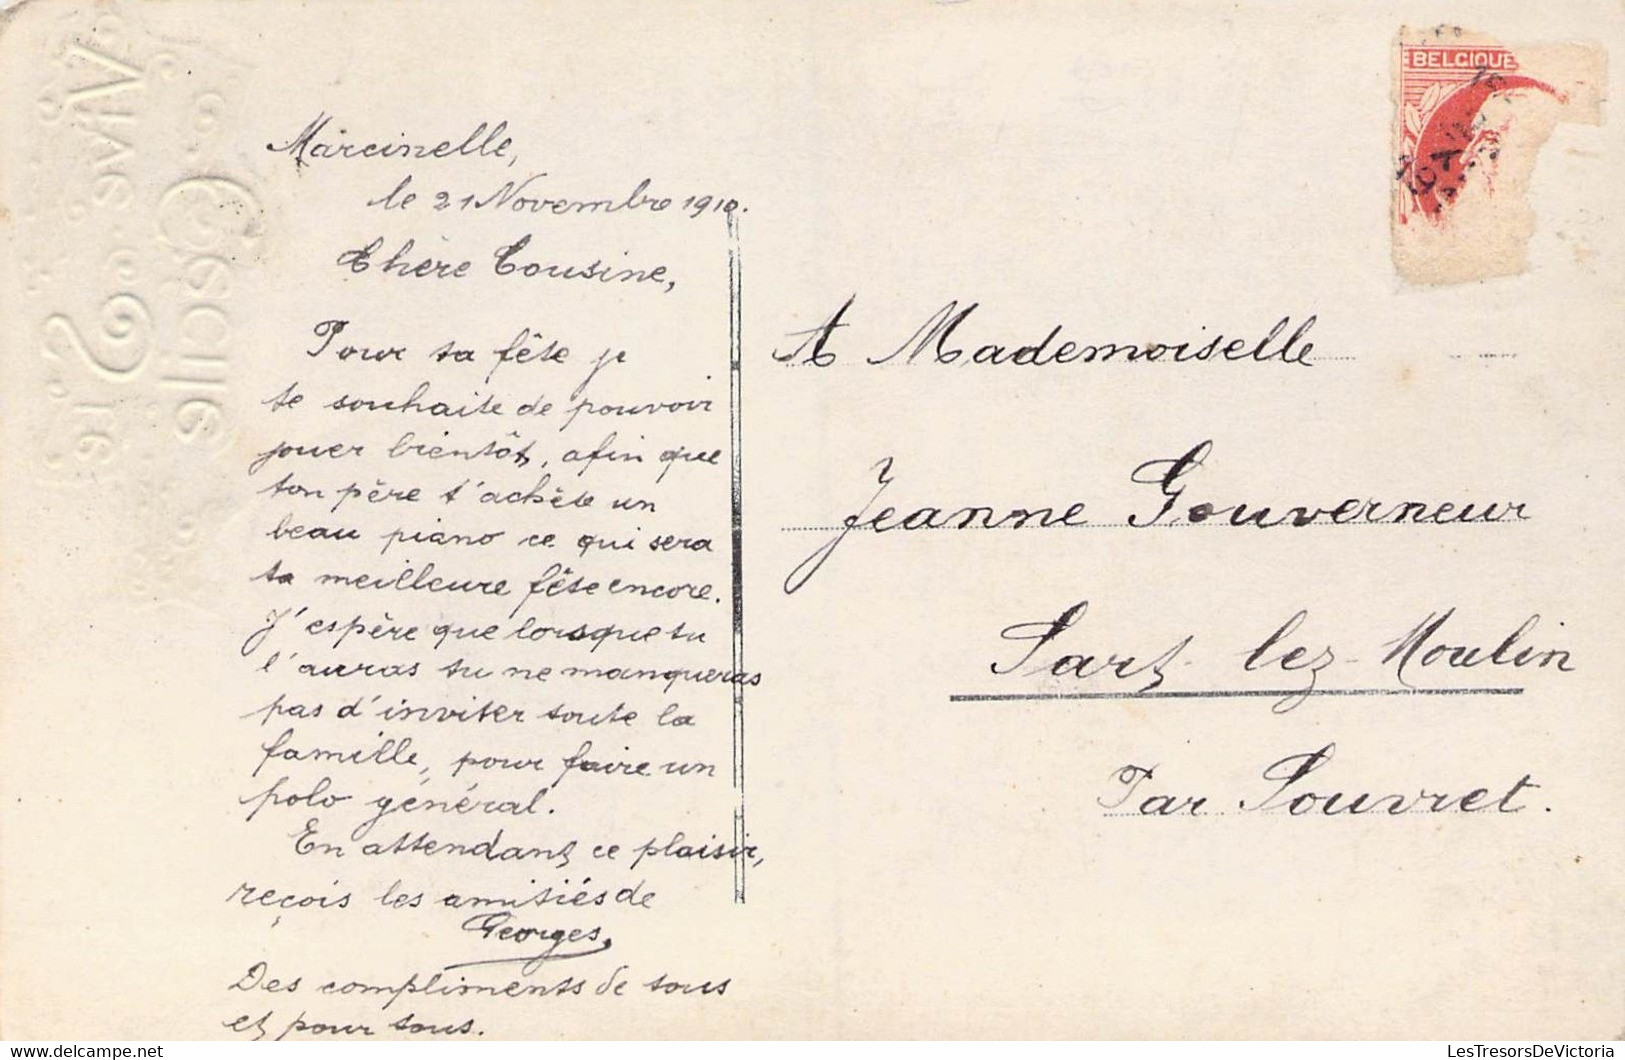 Vive Ste
Cécile
BELGIQUE
Marcinelle,
le 21 Novembre 1910.
Chère Cousine,
Pour ta fête je
te souhaite de pouvoir
jouer bientôt, afin que
ton père t'achète un
beau piano ce qui sera
ta meilleure fête encore.
J'espère que lorsque tu
l'auras tu ne manqueras
pas d'inviter toute la
famille, pour faire un
polo général.
En attendant ce plaisir,
reçois les amitiés de
Georges.
Des compliments de tous
et pour tous.
A Mademoiselle
Jeanne Gouverneur
Sart-lez-Moulin
Par Souvret.
LesTresorsDeVictoria